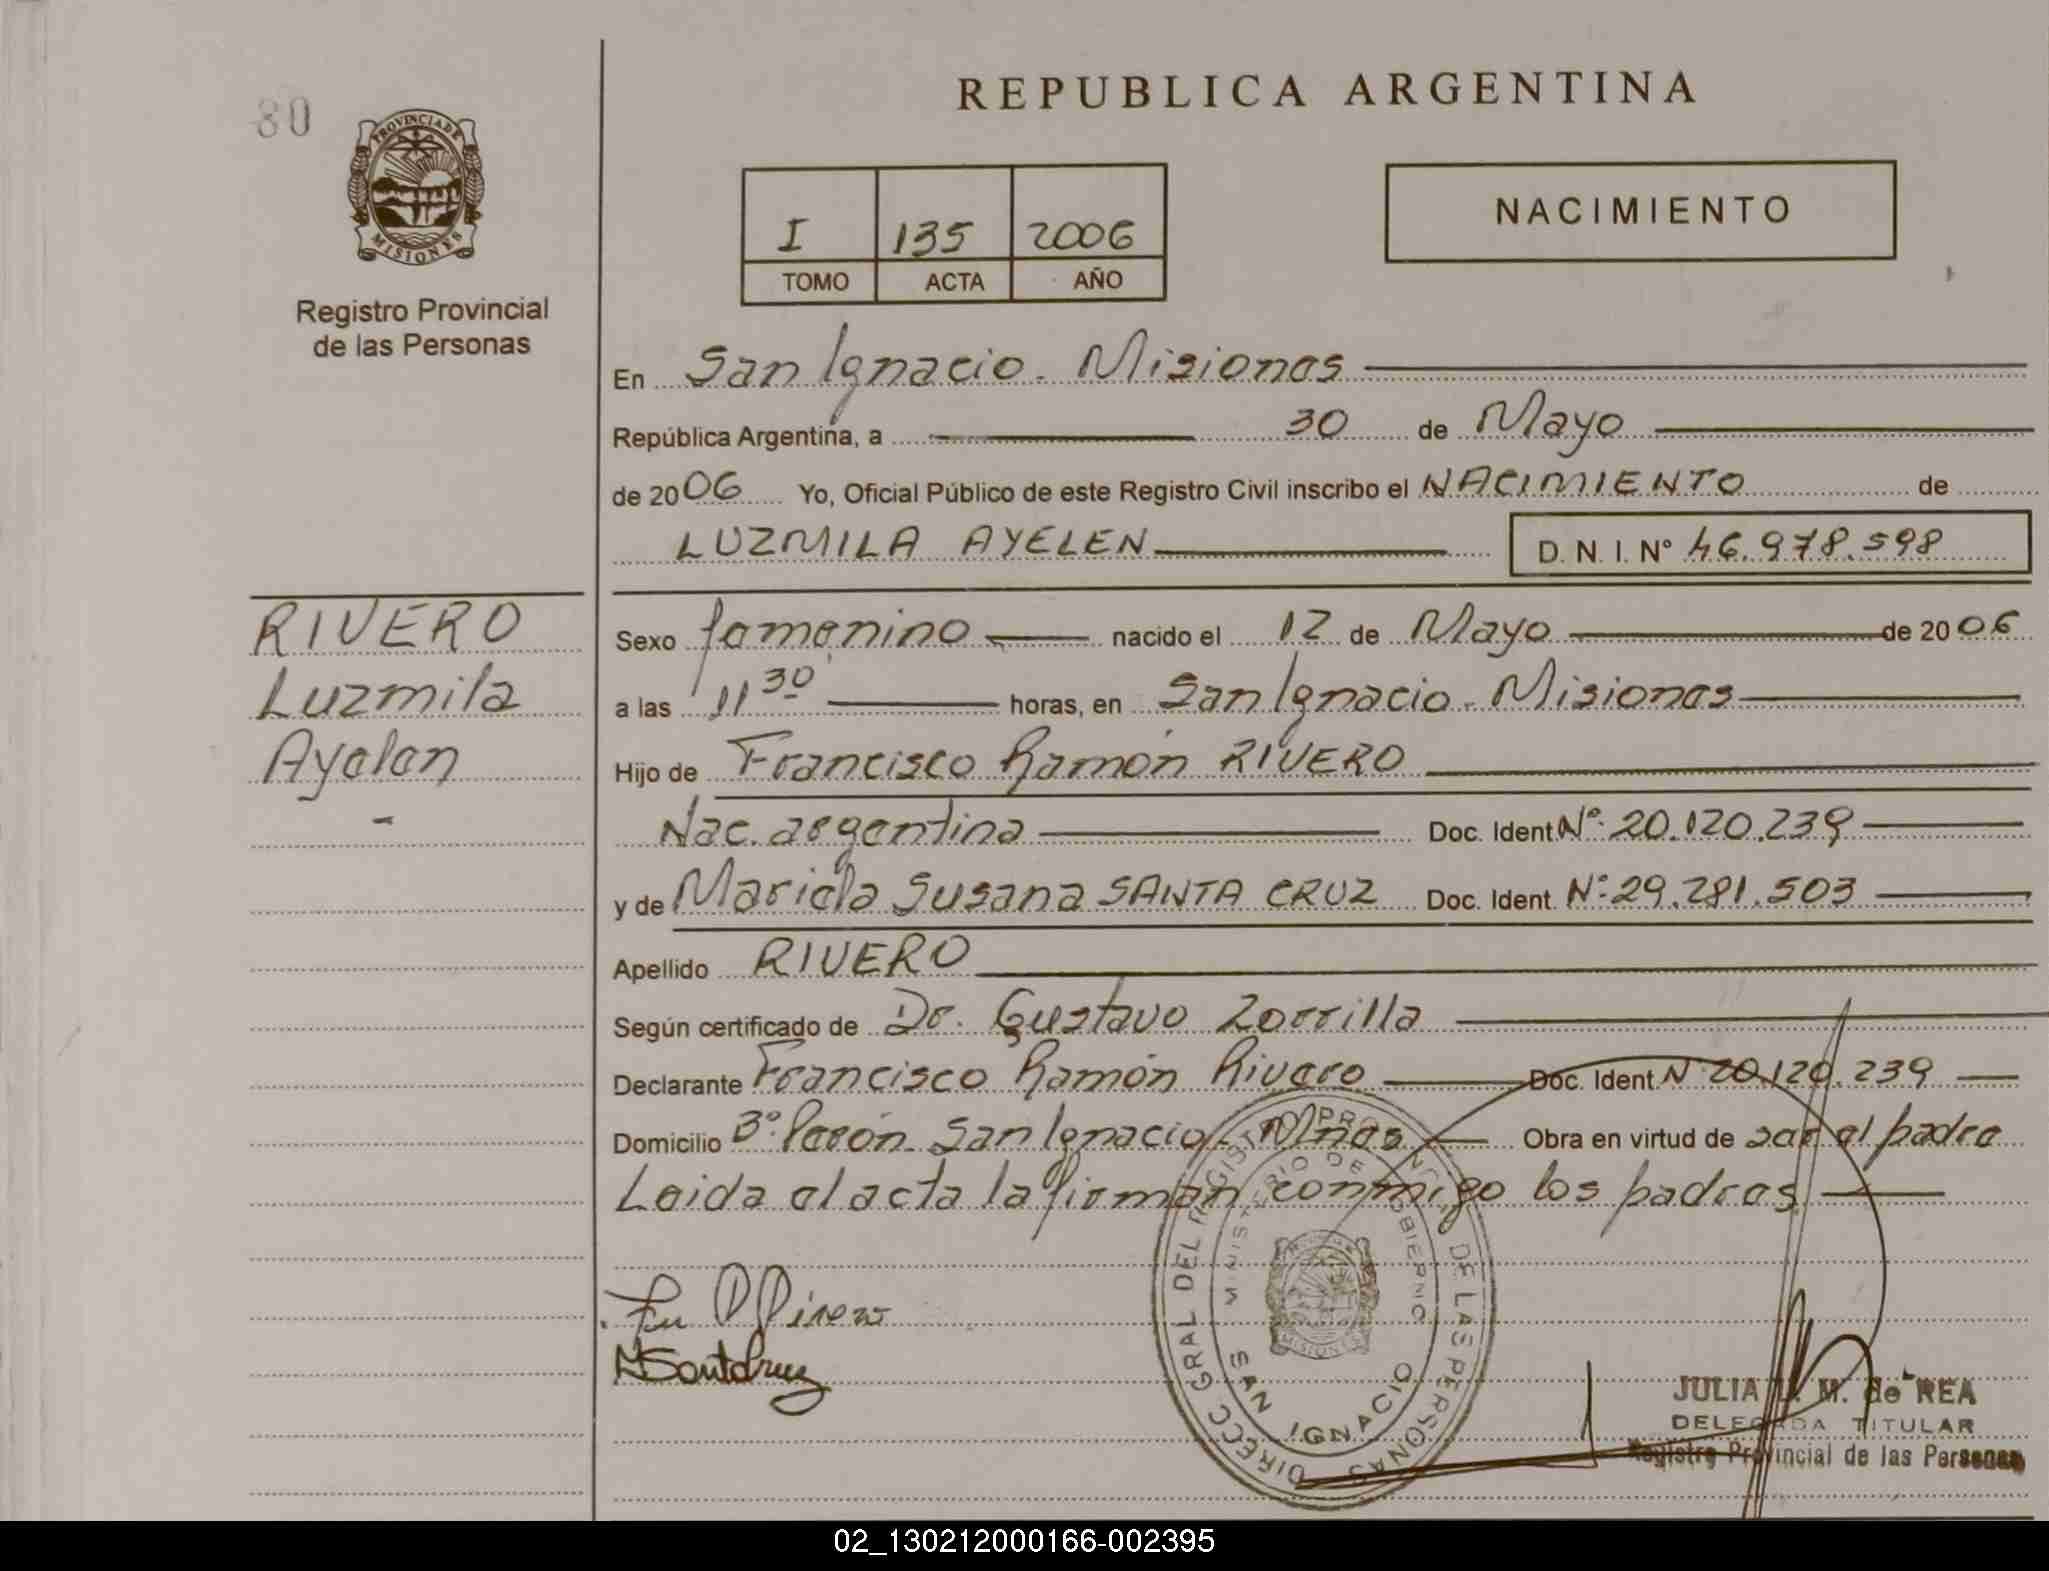 80
PROVINCIA DE
MISIONES
Registro Provincial
de las Personas
REPUBLICA ARGENTINA
I 135 2006
TOMO ACTA AÑO
NACIMIENTO
En San Ignacio - Misiones
República Argentina, a 30 de Mayo
de 2006 Yo, Oficial Público de este Registro Civil inscribo el NACIMIENTO de
LUZMILA AYELEN D.N.I. Nº 46.978.598
RIVERO
Luzmila
Ayelen
-
Sexo femenino nacido el 12 de Mayo de 2006
a las 11 30 horas, en San Ignacio - Misiones
Hijo de Francisco Ramón RIVERO
Nac. argentina Doc. Ident Nº 20.120.239
y de Mariela Susana SANTA CRUZ Doc. Ident. Nº 29.281.503
Apellido RIVERO
Según certificado de Dr. Gustavo Zorrilla
Declarante Francisco Ramón Rivero Doc. Ident N 20.120.239
Domicilio Bº Perón - San Ignacio - Mnes Obra en virtud de ser el padre
Leida el acta la firman conmigo los padres
DIRECC GRAL DEL REGISTRO PROVINCIAL DE LAS PERSONAS
MINISTERIO DE GOBIERNO
SAN IGNACIO
MISIONES
JULIA M. de REA
DELEGADA TITULAR
Registro Provincial de las Personas
02_130212000166-002395